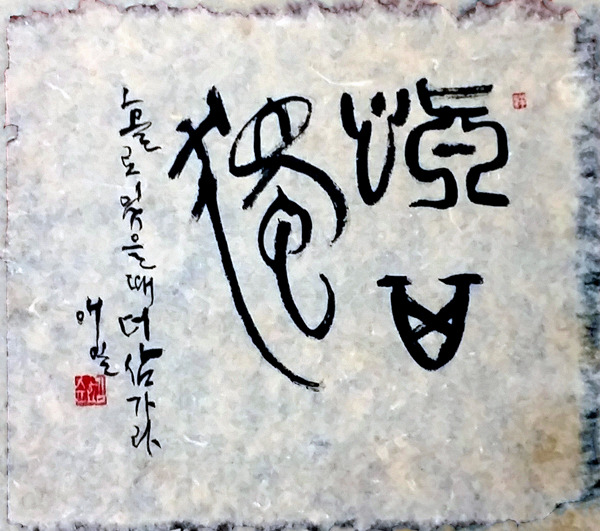 愼其
獨
홀로 있을 때 더 삼가라